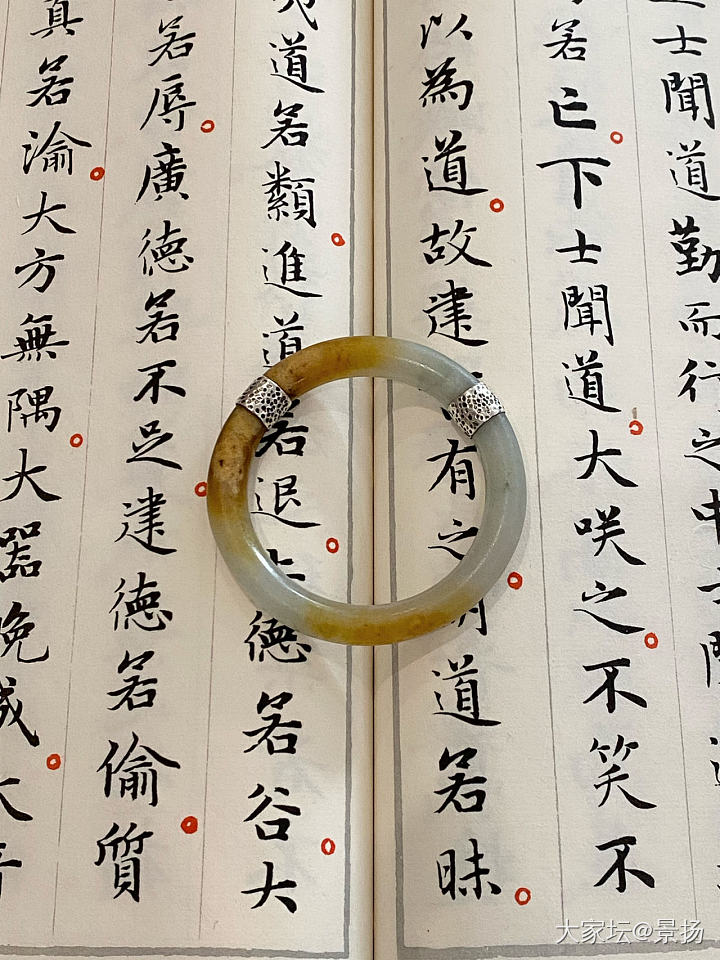 士聞道勤而行之中士聞
若亡下士聞道大咲之不笑不
以為道故建有之明道若昧
夷道若纇進道若退上德若谷大
若辱廣德若不足建德若偷質
真若渝大方無隅大器晚成大音
大家坛@景扬